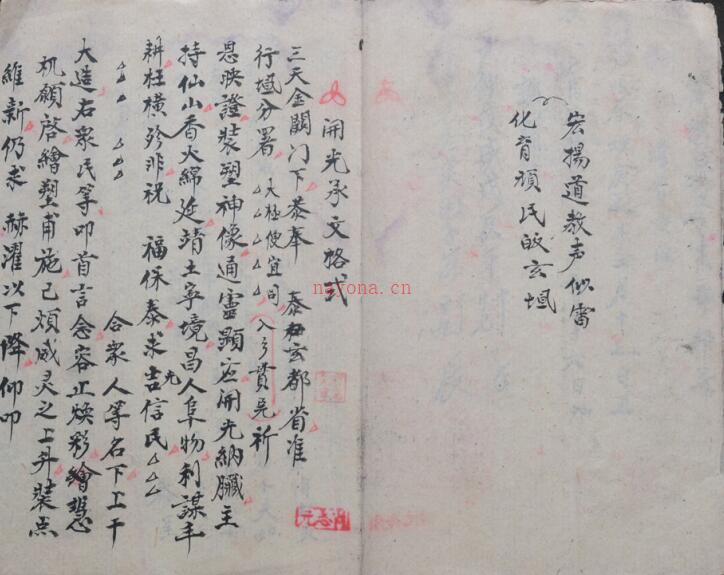 宏揚道教声似雷
化育頑民的玄壇
開光承文格式
三天金闕门下恭奉 泰玄都省准
行域分署 大極便宜同 入乡贲克 祈
恩映證裝塑神像通靈顯应開光納臟主
持仙山香火綿延靖土寧境昌人阜物利謀丰
耕枉橫殄非祝 福保泰求吉信民
合衆人等名下上干
大造右衆民等叩首言念容止煥彩繪塑
机願啓繪塑甫施已煩威灵之上升裝点
維新仍求赫濯以下降仰叩
nayona.cn